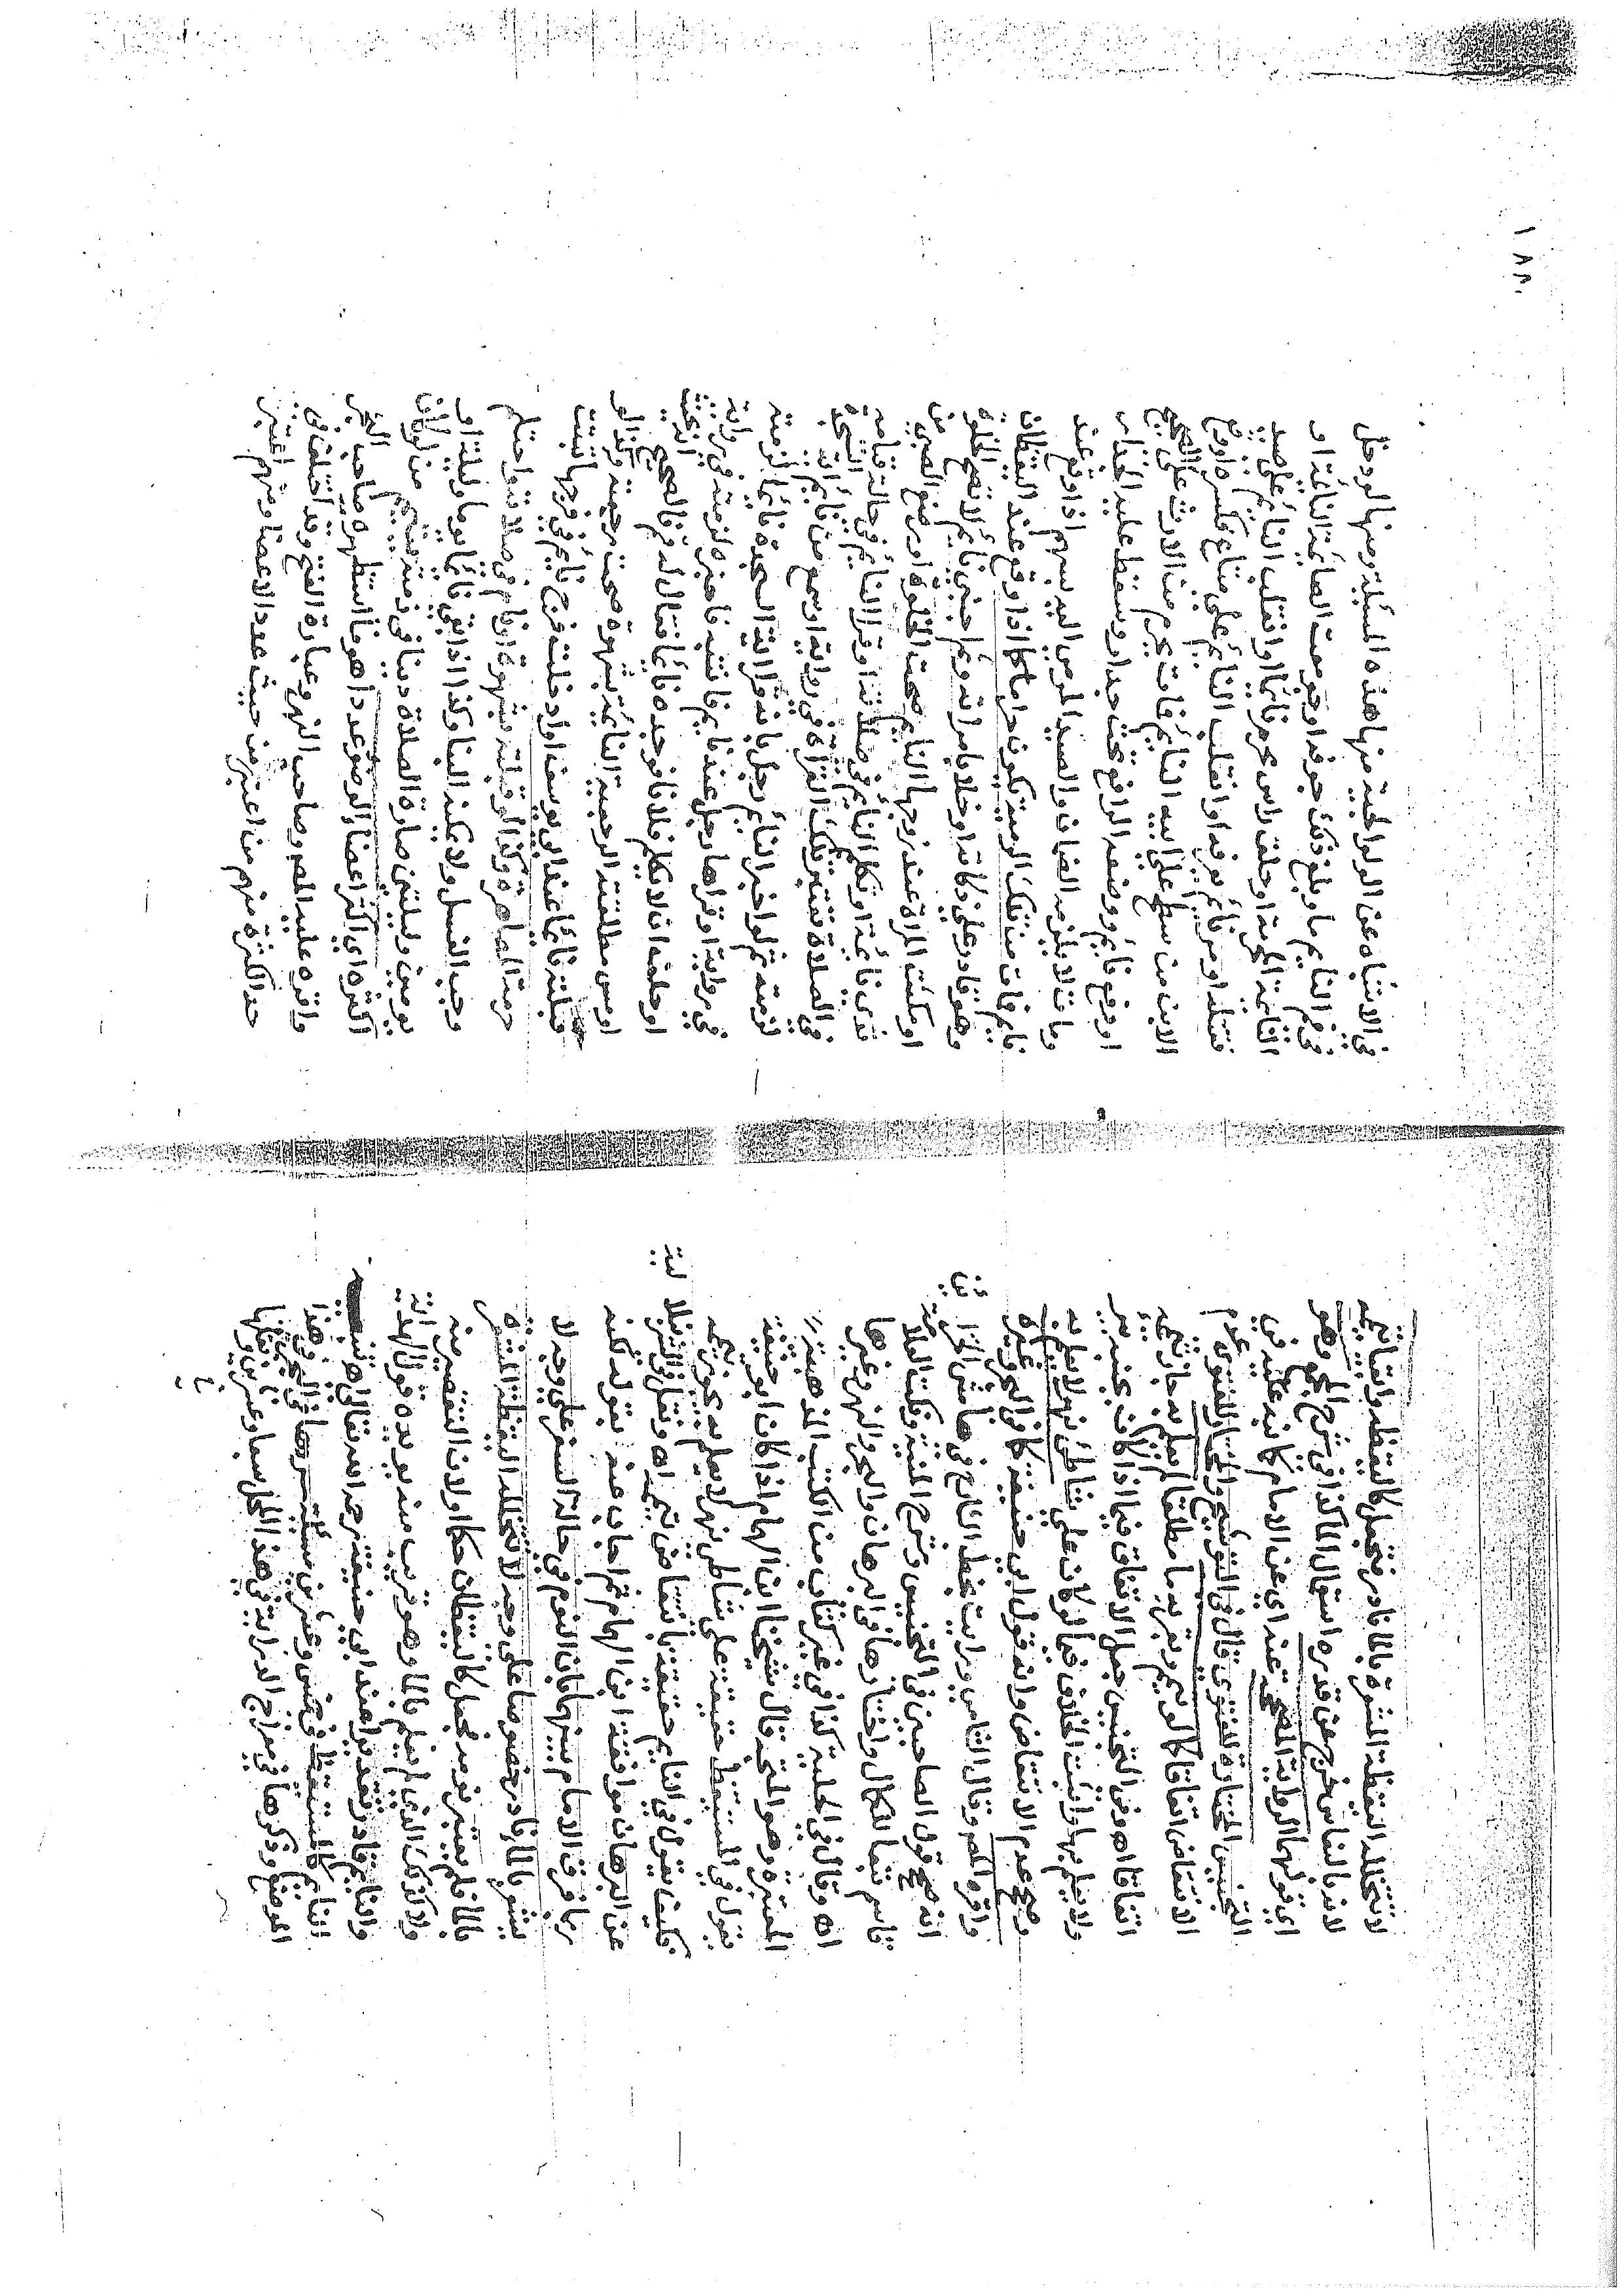 لا تتخلله اليقظة المشعرة بالماء نادر فتجعل كاليقظة وانتفا تيمه
لانه بالنا يخرج عن قدره استعمال الماء كذا في شرح المجمع وهو
اي قولهما الرواية المصححة عنه اي عن الامام كما نبه عليه في
التجنيس المختارة للفتوى قال في التوشيح والمختار للفتوى عدم
الانتقاض اتفاقا كما لو تيمم وبقربه ما مطلقا لم يعلم به جاز تيممه
اتفاقا اه وفي التجنيس جعل الاتفاق فيما اذا كان بجنبه بير
ولا يعلم بها واثبت الخلاف فيما لو كان على شاطئ نهر لا يعلم به
وصحح عدم الانتقاض وانه قول ابي حنيفة كما في البحر وغيره
واقره المصـ وقال الشامي ورايت بخط الشارح في هامش الخزا
ئن
انه صحح قول الصاحبين في التجنيس وشرح المنية ونكت العلامة
قاسم تبعا للكمال واختارها في البرهان والبحر والنهر وغيرها
اه وقال في الحلية كذا في غير كتاب من الكتب المذهبية
المعتبرة وهو المتجه قال شيخنا ابن الهمام اذا كان ابو حنيفة
يقول في المستيقظ حقيقة على شاطئ نهر لا يعلم به يجوز تيممه
فكيف يقول في النايم حقيقة بانتقاض تيممه اه ونقل في الشرنبلا
لية
عن البرهان موافقة ابن الهمام ثم اجاب عنه بقوله لكنه
ربما فرق الامام بينهما بان النوم في حالة السفر على وجه لا
يشعر بالماء نادر خصوصا على وجه لا تتخلله اليقظة المشعرة
بالماء فلم يعتبر نومه فجعل كاليقظان حكما او لان التقصير منه
ولا كذلك الذي لم يعلم بالماء وهو قريب منه يويده قول الهداية
والنايم قادر تقديرا عند ابي حنيفة رحمه الله تعالى اه تنبيه
النايم كالمستيقظ في خمس وعشرين مسئلة سردها في البحر وهذا
الموضع وذكرها في معراج الدراية في هذا المحل سبعا وعشرين
١٨٨
في الانتباه عن الولوالجية منها هذه المسئلة ومنها لو دخل
في فم النايم ما وبلغ ذلك جوفه او جومعت الصائمة النائمة او
النائمة المحرمة او حلق راس محرم نايما او انقلب النايم على صيد
فقتله او مر نايم بعرفة او انقلب النايم على متاع فكسره او وقع
الابن من سطح على ابيه النايم فمات يحرم من الارث على الصحيح
او رفع نايم ووضعه الرافع تحت جدار وسقط عليه الجدار
ومات لا يلزمه الضمان والصيد المرمي اليه بسهم اذا وقع عند
نايم فمات من تلك الرمية يكون حراما كما اذا وقع عند اليقظان
وهو قادر على ذكاته او خلا بامراته وثم اجنبي نايم لا تصح الخلوة
او مكثت المراة عند زوجها النايم صحت الخلوة او رضع الصبي من
ثدي نايمة او تكلم النايم في صلاته او قرا النايم في حالة قيامه
في الصلاة تعتبر تلك القراة في رواية او سمع من نايم اية السجدة
لزمته ثم لو اخبر النايم رجل بانه قرا اية السجدة نايما لزمته
في رواية او قراها رجل عند نايم فانتبه فاخبره لزمته في رواية
او حلف ان لا يكلم فلانا فوجده نايما فقال له قم فالصحيح الحنث
او مس مطلقته الرجعية النايمة بشهوة صحت رجعية وكذا لو
قبلته نايما عند ابي يوسف او ادخلت فرج نايم في فرجها تثبت
حرمة المصاهرة وكذا لو قبلته بشهوة او نام في صلاته واحتلم
وجب الغسل ولا يمكنه البنا وكذا اذا بقي نايما يوما وليلة او
يومين وليلتين صارت الصلاة دينا في ذمته
اكثره اي اكثر اعضا الوضوء عددا هو ما استظهره صاحب البحر
واقره عليه المصـ وصاحب النهر وعبارة الفتح وقد اختلف في
حد الكثرة منهم من اعتبر من حيث عدد الاعضا ومنهم اعتبر